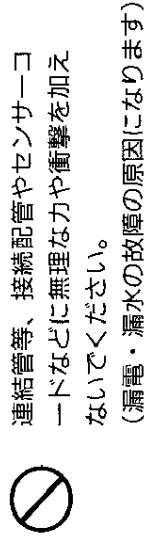 連結管等、接続配管やセンサーコ
ードなどに無理な力や衝撃を加え
ないでください。
(漏電・漏水の故障の原因になります)